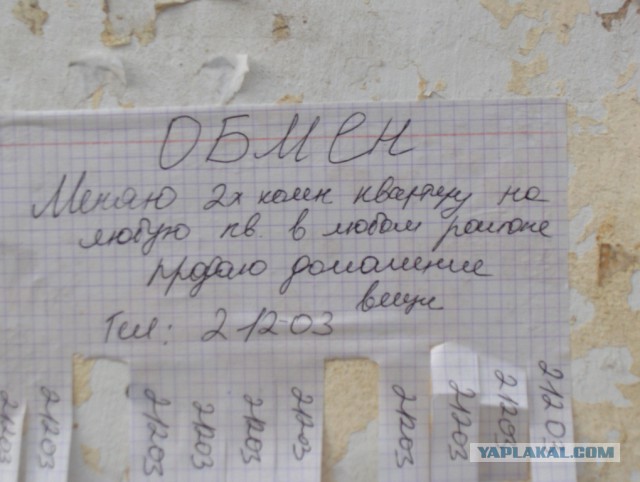 ОБМЕН
Меняю 2х комн квартиру на
любую кв. в любом районе
продаю домашние
вещи
Тел: 2-12-03
21203
21203
21203
21203
21203
21203
21203
21203
21203
21203
YAPLAKAL.COM